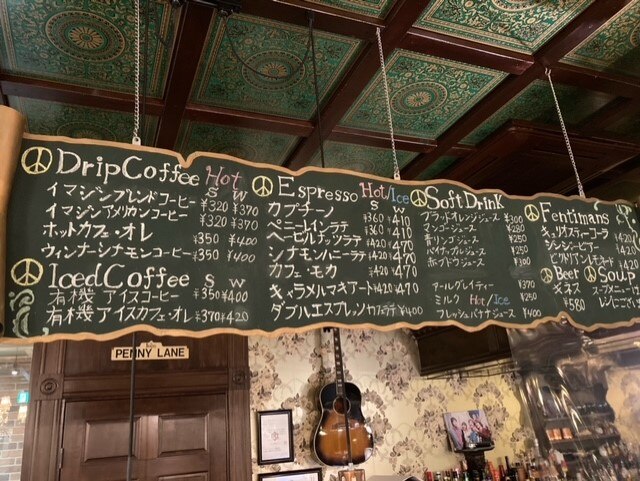 Drip Coffee Hot S W
イマジンブレンドコーヒー ¥320 ¥370
イマジンアメリカンコーヒー ¥320 ¥370
ホットカフェ・オレ ¥350 ¥400
ウィンナーシナモンコーヒー ¥350 ¥400
Iced Coffee S W
有機 アイスコーヒー ¥350 ¥400
有機 アイスカフェ・オレ ¥370 ¥420
Espresso Hot/Ice S W
カプチーノ ¥360 ¥410
バニーユラテ ¥420 ¥470
ヘーゼルナッツラテ ¥420 ¥470
シナモンハニーラテ ¥420 ¥470
カフェ・モカ ¥420 ¥470
キャラメルマキアート ¥420 ¥470
ダブルエスプレッソカフェラテ ¥400
Soft Drink
ブラッドオレンジジュース ¥300
マンゴージュース ¥280
青リンゴジュース ¥250
パイナップルジュース ¥250
ホワイトブドウジュース
アールグレイティー ¥370
ミルク Hot/Ice ¥250
フレッシュバナナジュース ¥400
Fentimans
キュリオスティーコーラ
ジンジャービアー
ビクトリアンレモネード ¥420
Beer
ギネス
¥580
Soup
スープメニューは
レジにござい
PENNY LANE